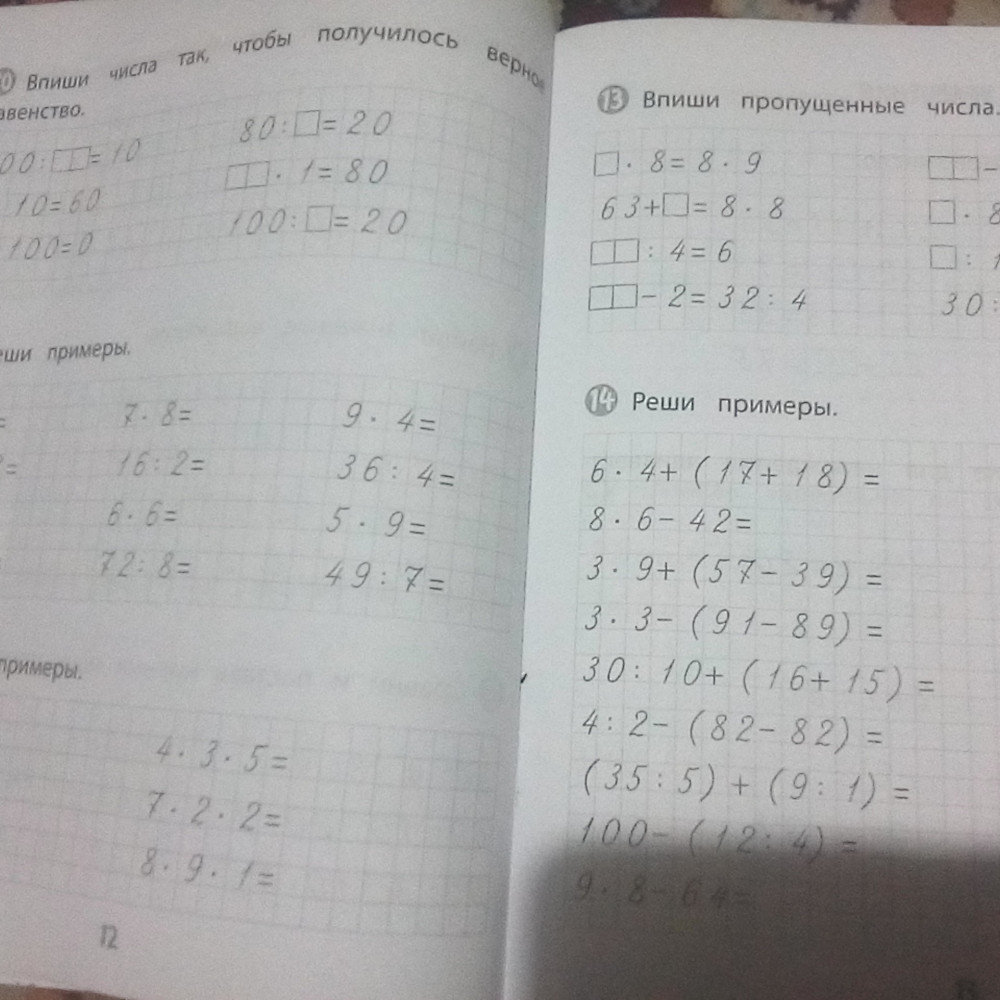 Впиши числа так, чтобы получилось верное
авенство.
00:□□=10 80:□=20
10=60 □□·1=80
100=0 100:□=20
еши примеры.
= 7·8= 9·4=
= 16:2= 36:4=
6·6= 5·9=
72:8= 49:7=
примеры.
4·3·5=
7·2·2=
8·9·1=
12
13 Впиши пропущенные числа.
□·8=8·9 □□-
63+□=8·8 □·8
□□:4=6 □:1
□□-2=32:4 30:
14 Реши примеры.
6·4+(17+18)=
8·6-42=
3·9+(57-39)=
3·3-(91-89)=
30:10+(16+15)=
4:2-(82-82)=
(35:5)+(9:1)=
100-(12:4)=
9·8-64=